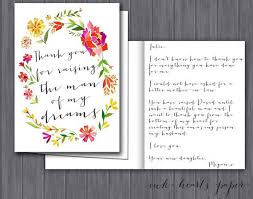 Thank you
for raising
the man
of my
dreams
Julie,
I don't know how to thank you
for everything you have done for
me.
I could not have asked for a
better mother-in-law.
You have raised David until
such a beautiful man and I
thank you from the bottom of my
heart for creating and
this amazing person
my husband.
I love you.
Your daughter,
Megan
ink + hearts paper